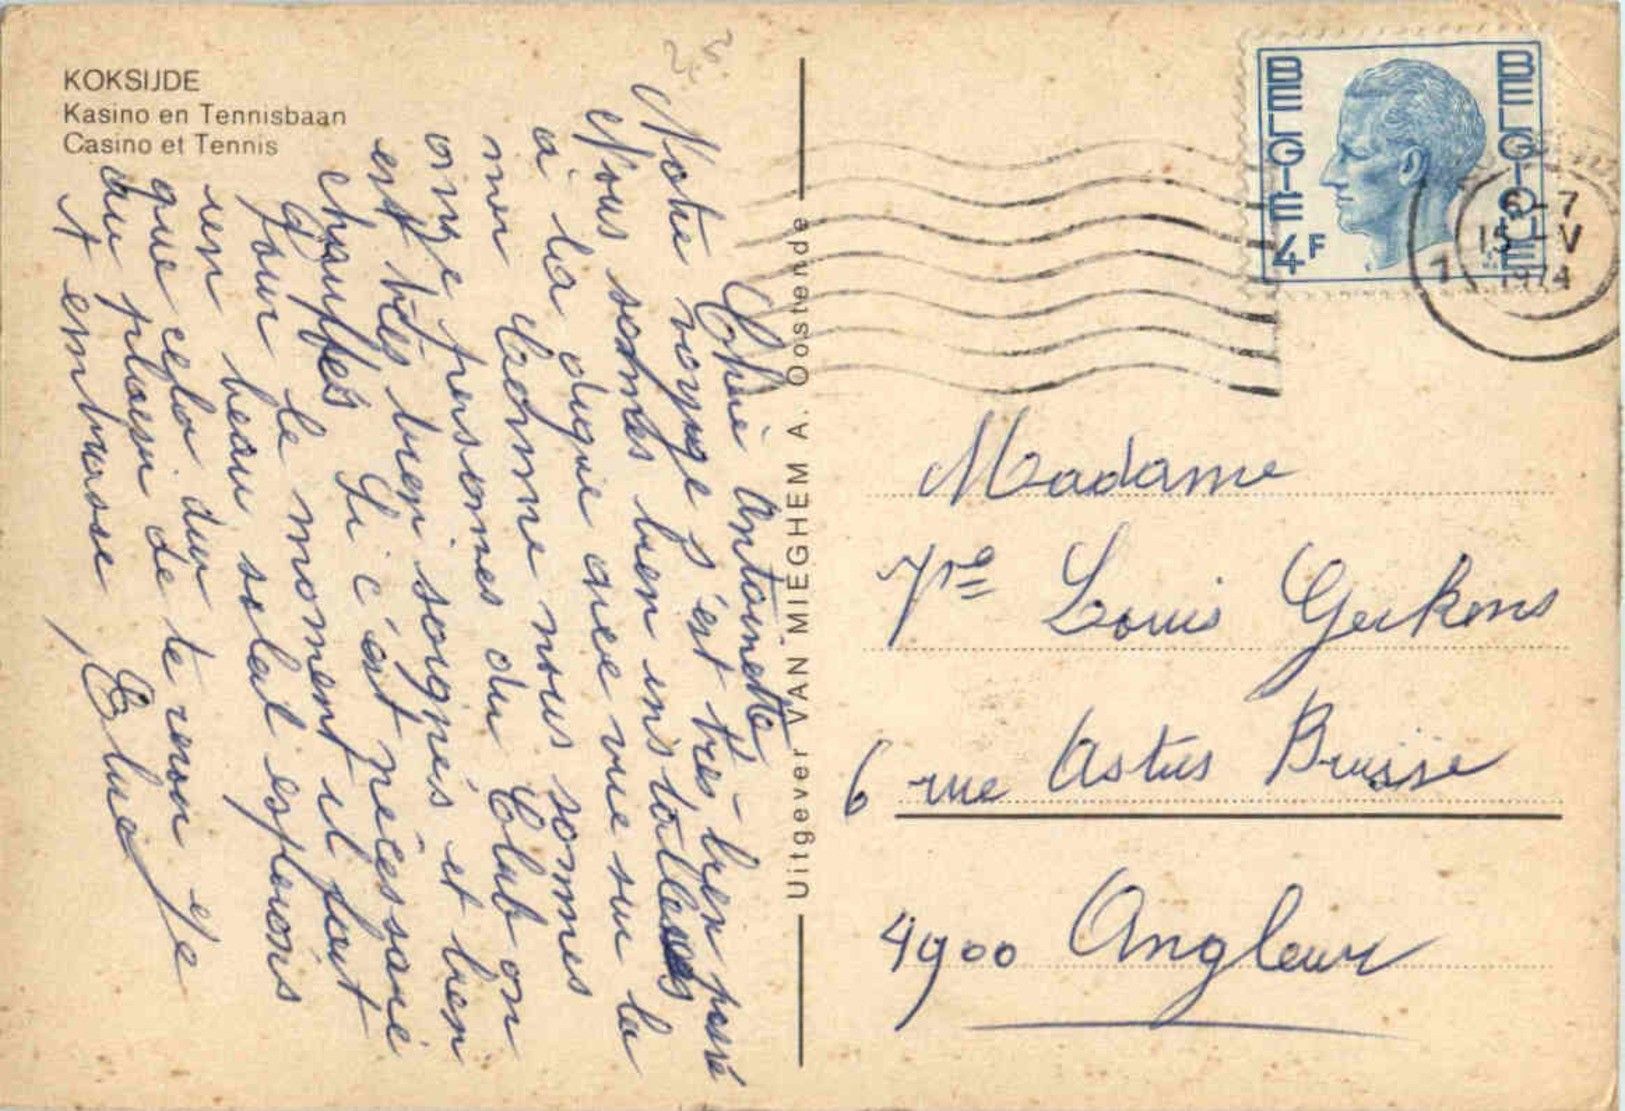 KOKSIJDE
Kasino en Tennisbaan
Casino et Tennis
Chère Antoinette
Notre voyage s'est très-bien passé
Nous sommes bien installées
à la digue avec vue sur la
mer Comme nous sommes
onze personnes du Club on
est très bien soignés et bien
chauffés Si c'est nécessaire
le moment il fait
un beau soleil espérons
que cela dur
du plaisir de te revoir Je
t embrasse
Uitgever VAN MIEGHEM A. Oostende
BELGIE
BELGIQUE
4F
6-7
15-V
1974
Madame
Louis Geikens
6 rue Astus Bruisse
4900 Angleur